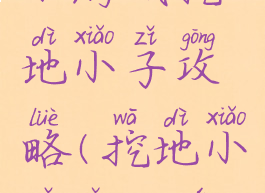 dì xiǎo zǐ gōng
地小子攻
lüè wā dì xiǎo
略(挖地小